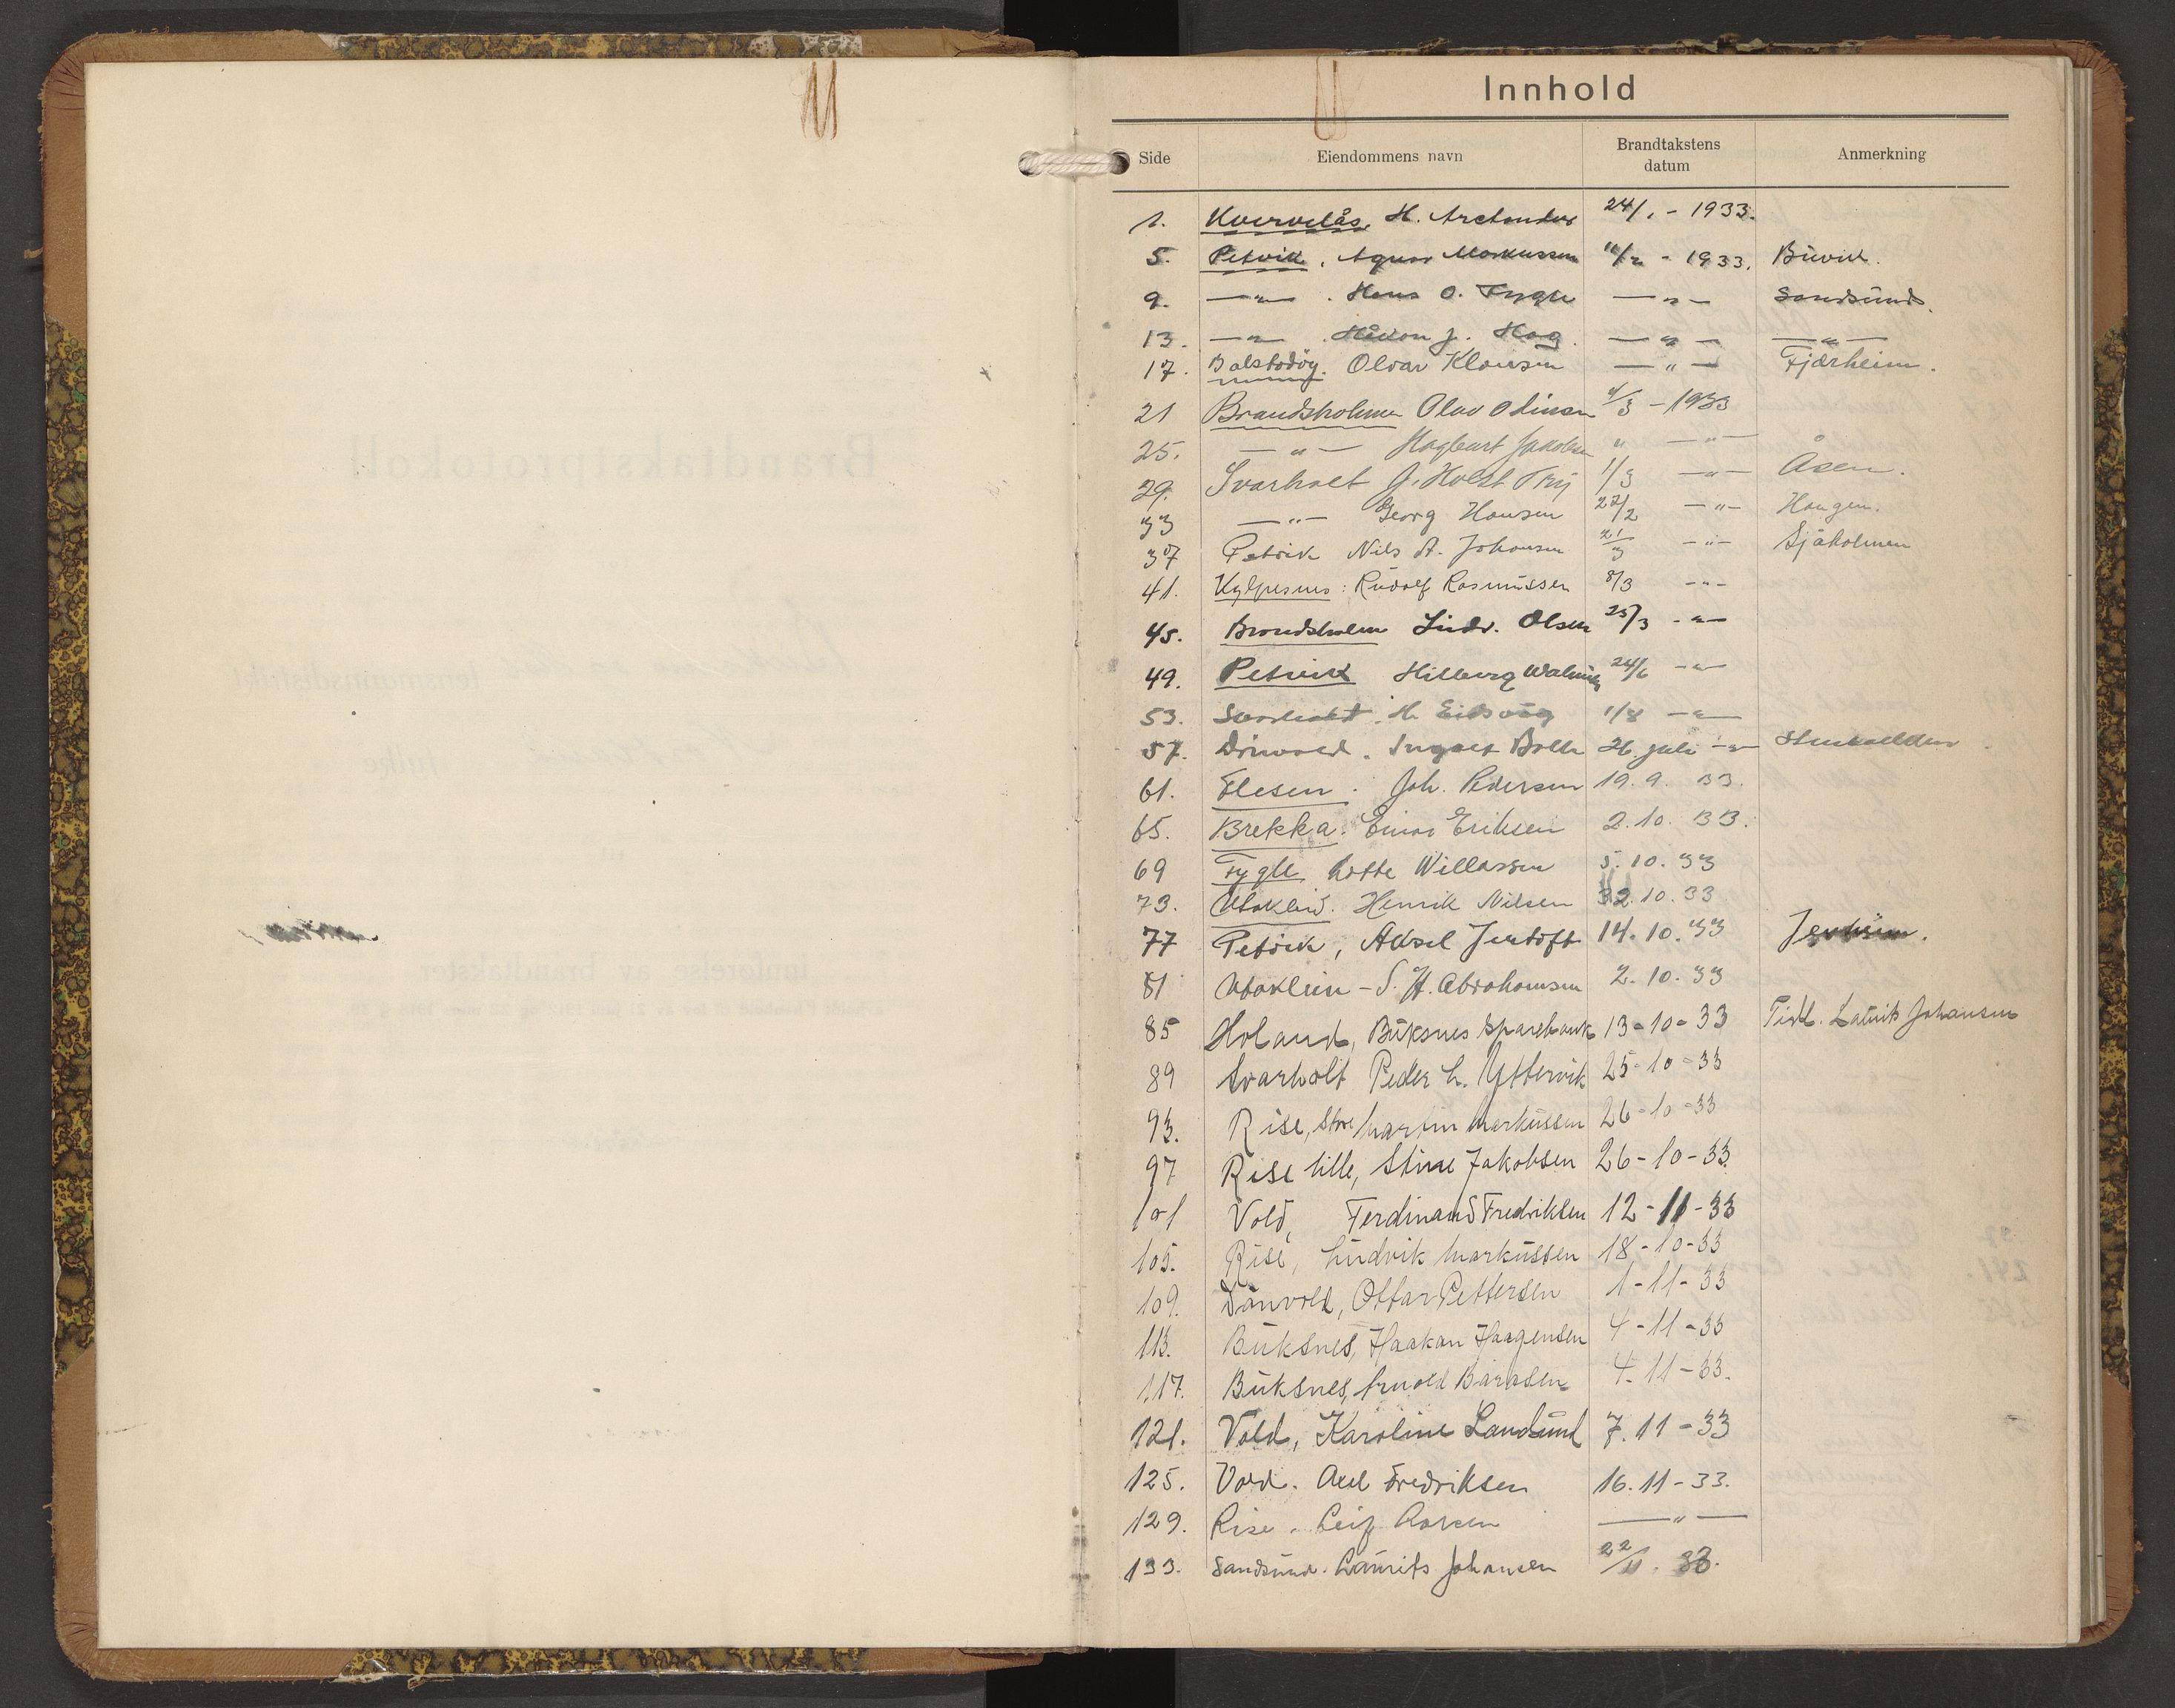 Innhold
Side Eiendommens navn Brandtakstens datum Anmerkning
1. H. 24/1 - 1933.
5. Petvik, Agnar Markussen 11/2 - 1933. Buvik.
9. —"— . Hans O. Fygle —"— Sandsund.
13. —"— . Håkon J. Hag. —"— —"—
17. Olvar Klausen —"— Fjærheim.
21 Brandsholmen Olav Odinsen 4/3 - 1933
25. —"— Hagbart Jakobsen " —"—
29. Svarholt J. Holst 1/3 —"— Åsen.
33 —"— Georg Hansen 27/2 —"— Haugen.
37 Petvik Nils A. Johansen 21/3 —"— Sjåholmen
41. Kylpesnes: Rudolf Rasmussen 8/3 —"—
45. Brandsholm Ludv. Olsen 25/3 —"—
49. Petvik Hilberg 24/6 —"—
53. Svarholt. H. Eidsvåg 1/8 —"—
57. 26. juli —"—
61. Flesen. Joh. Pedersen 19.9. 33.
65. Brekka. Einar Eriksen 2.10. 33.
69 Fygle Lotte Willassen 5.10.33
73. Utakleiv. Henrik Nilsen 2.10.33
77 Petvik, Aksel Jentoft 14.10.33
81 Utakleiv - S. H. Abrahamsen 2.10.33
85 Holand, Buksnes Sparebank 13-10-33 Tidl. Laurits Johansen
89 Svarholt Peder L. Yttervik 25-10-33
93. Rise, Store Martin Markussen 26-10-33
97 Rise lille, Stine Jakobsen 26-10-33.
101 Vold, Ferdinand Fredriksen 12-11-33
105. Rise, Ludvik Markussen 18-10-33
109. Ottar Pettersen 1-11-33
113. Buksnes, Haakon Haagensen 4-11-33
117. Buksnes, Arnold Baradsen 4-11-33.
121. Vold, Karoline 7.11-33
125. Vold. Axel Fredriksen 16.11-33.
129. Rise. Leif Larsen —"—
133. Sandsund. Laurits Johansen 22/11. 33.